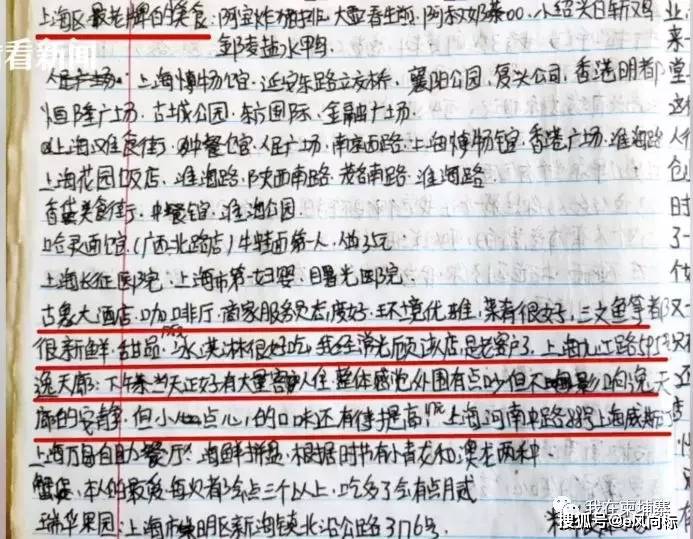 看看新闻
上海区最老牌的美食:阿宝炸猪排.大壶春生煎.阿 奶茶00.小绍兴白斩鸡
盐水鸭
人民广场.上海博物馆.延安东路立交桥.襄阳公园.复兴公司.香港明都
恒隆广场.古城公园.东方国际.金融广场.
上海 食街. 餐馆.人民广场.南京西路.上海博物馆.香港广场.淮海路
上海花园饭店.淮海路.陕西南路.茂名南路.淮海路.
美食街.中餐馆.淮海公园.
哈灵面馆.(广西北路店)牛 面第一人.
上海长征医院.上海市第一妇婴.曙光医院.
古象大酒店.咖啡厅.商家服务员态度好.环境优雅.菜肴很好.三文鱼等都
很新鲜.甜品.冰淇淋很好吃.我经常光顾该店.是老客户了.上海九江路595号
逸天廊:下午茶当天正好有大量客人住.整体感觉外围有点吵但不影响逸天
廊的安静.但小点心.的口味还有待提高.上海河南中路 号上海威斯
上海万易自助餐厅:海鲜拼盘.根据时节有小青龙和澳龙两种
蟹 .本人的最爱每次都会点三个以上.吃多了会有点月贰
瑞华果园:上海市崇明区新海镇北沿公路3176号.
业
来
堂
路
人
创
时
了
一
做
只
又
我在柬埔寨
搜狐号@b风向标